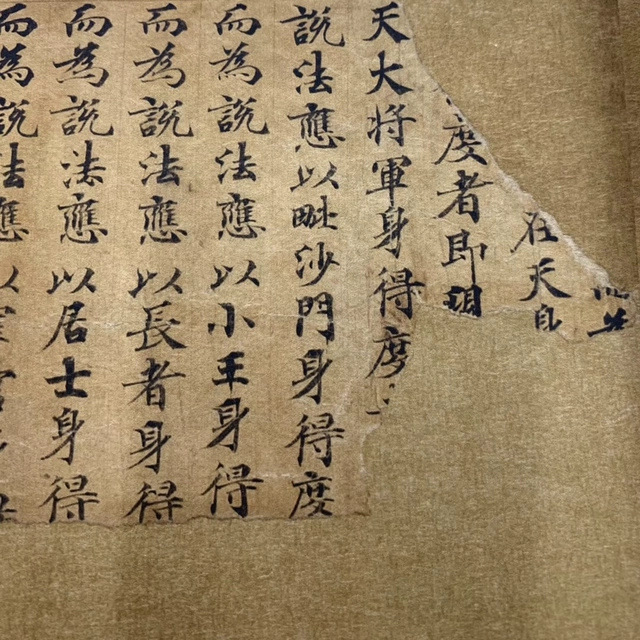 在天身
度者即現
天大将軍身得度
說法應以毗沙門身得度
而為說法應以小王身得
而為說法應以長者身得
而為說法應以居士身得
而為說法應以宰官身